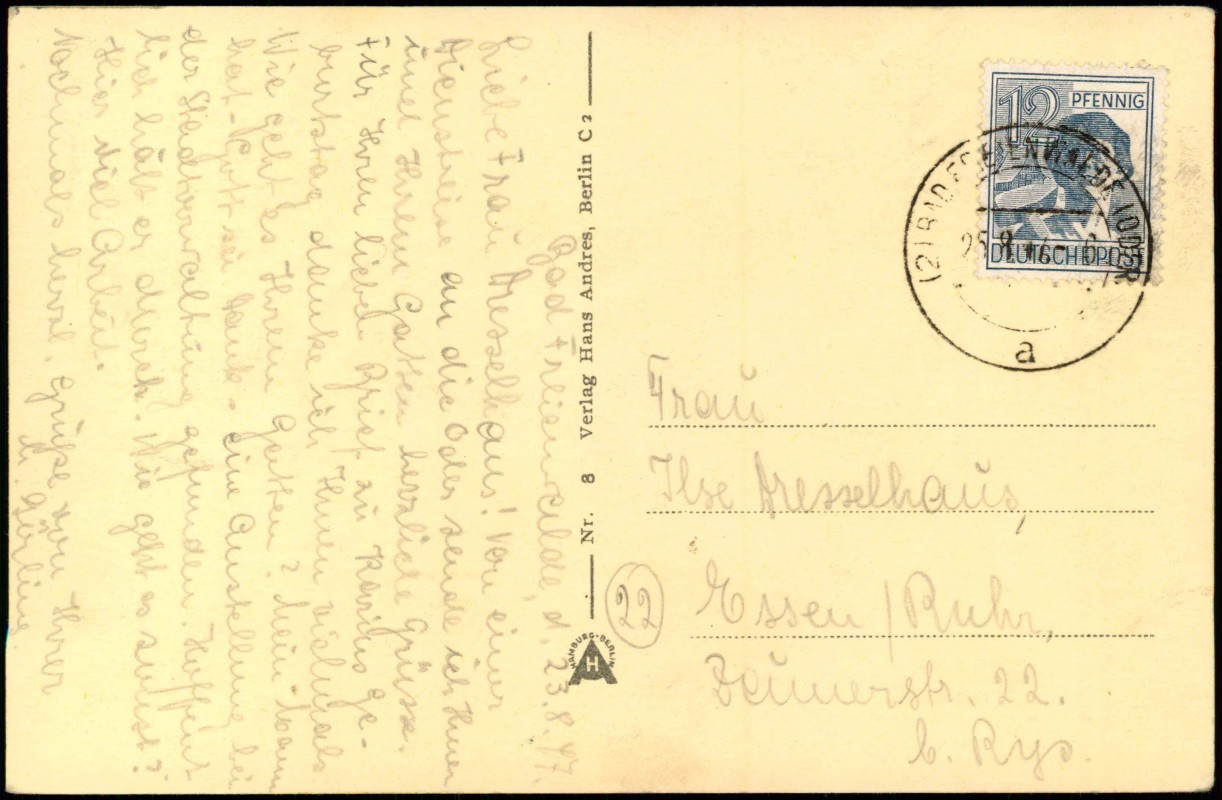 Bad Freienwalde, d. 23.8.47.
Liebe Frau Dresselhaus! Von einer
Dienstreise an die Oder sende ich Ihnen
und Ihrem Gatten herzliche Grüsse.
Für Ihren lieben Brief zu Ge-
burtstag danke ich Ihnen vielmals
Wie geht es Ihrem Garten? Mein Mann
hat - Gott sei Dank - eine Anstellung bei
der Stadtverwaltung gefunden. Hoffent
lich hält er durch. Wie geht es sonst?
Hier viel Arbeit.
Nochmals herzl. Grüße von Ihrer
Nr. 8 Verlag Hans Andres, Berlin C 2
HAMBURG-BERLIN
H
12 PFENNIG
DEUTSCHE POST
(2) BAD FREIENWALDE (ODER)
a
Frau
Ilse Dresselhaus,
22
Essen/Ruhr,
22.
b. Rys.